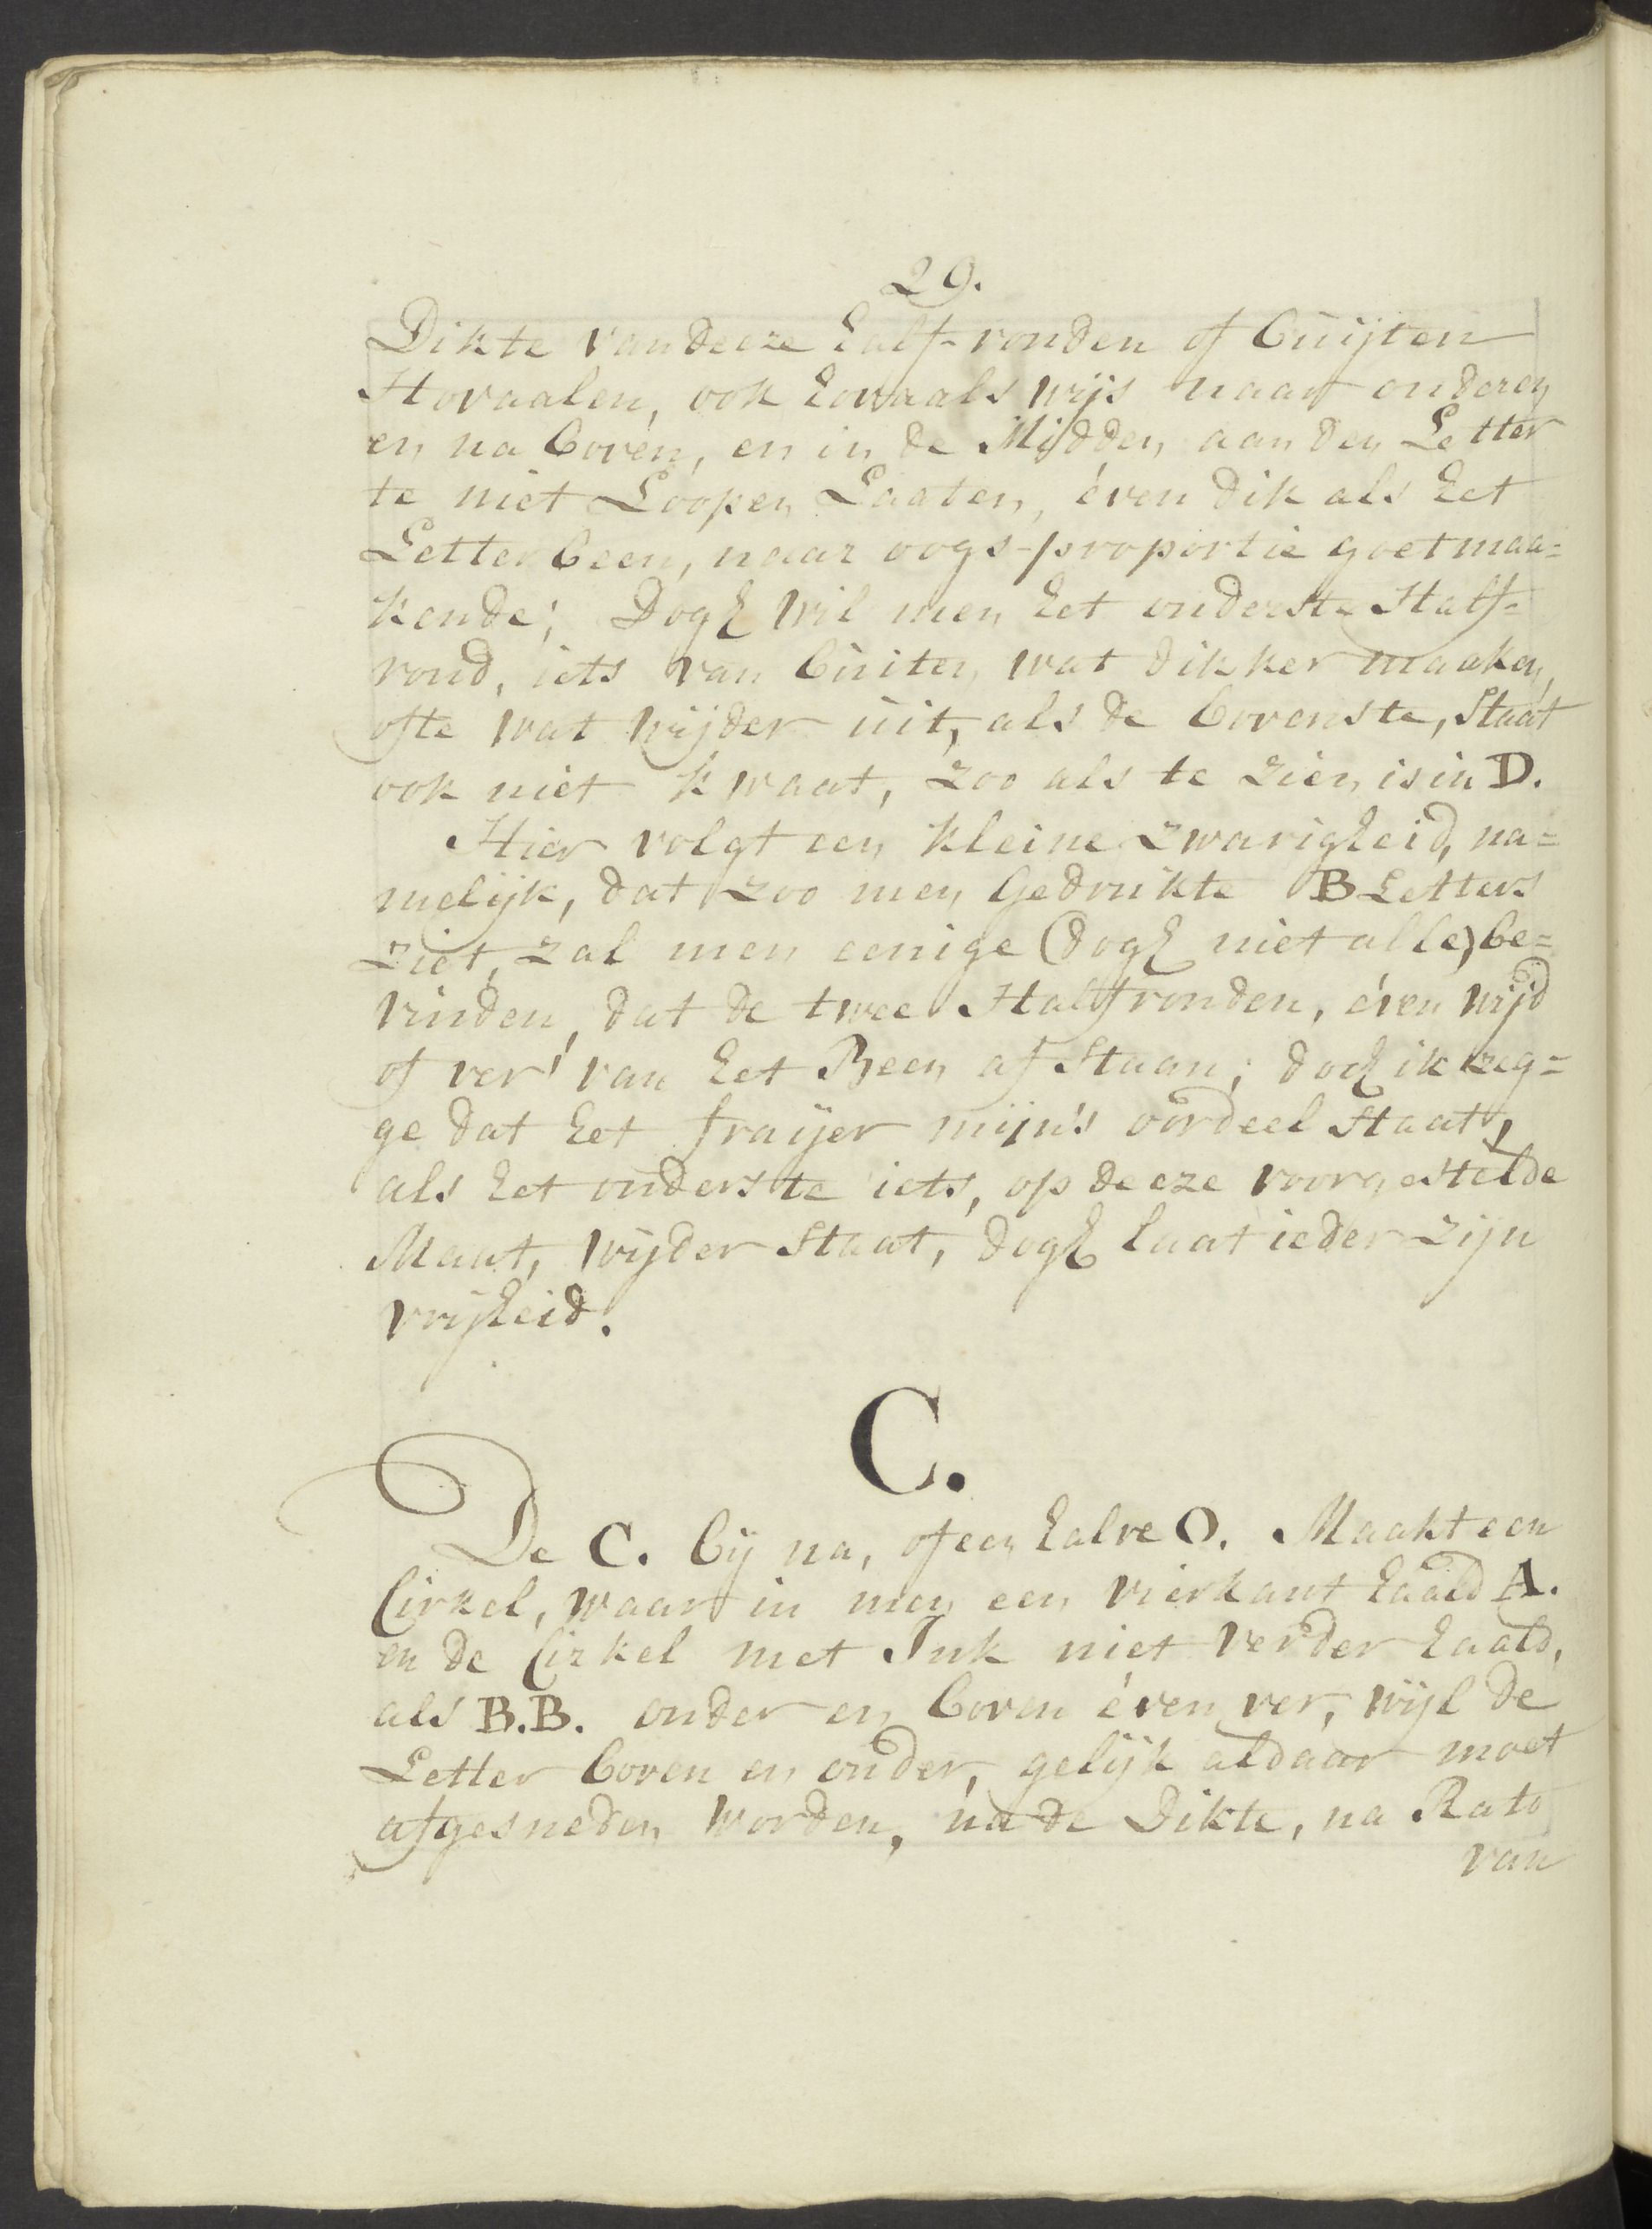 29.
Dikte van deeze half-ronden of buijten
Hovaalen, ook hovaals wijs naar onderen
en na boven, en in de Midden aan den Letter
te niet Loopen Laaten, éven dik als het
Letterbeen, naar oogs-proportie goetmaa=
kende; Dogh wil men het onderste Half=
rond, iets van buiten wat dikker maaken,
ofte wat wijder uit, als de bovenste, Staat
ook niet kwaat, zoo als te zien is in D.
Hier volgt een kleine zwarigheid, na=
melijk, dat zoo men Gedrukte B Letters
ziet, zal men eenige (dogh niet alle) be=
vinden, dat de twee Halfronden, éven wijd
of ver' van het Been af Staan; doch ik zeg=
ge dat het fraijer mijn's oordeel Staat,
als het onderste iets, op deeze voorgestelde
Maat, wijder Staat, dogh laat ieder zijn
vrijheid.
C.
De C. bij na, of een halve O. Maakt een
Cirkel, waar in men een vierkant haald A.
en de Cirkel met Ink niet verder haald,
als B.B. onder en boven éven ver, wijl de
Letter boven en onder, gelijk aldaar moet
afgesneden worden, na de Dikte, na Rato
van